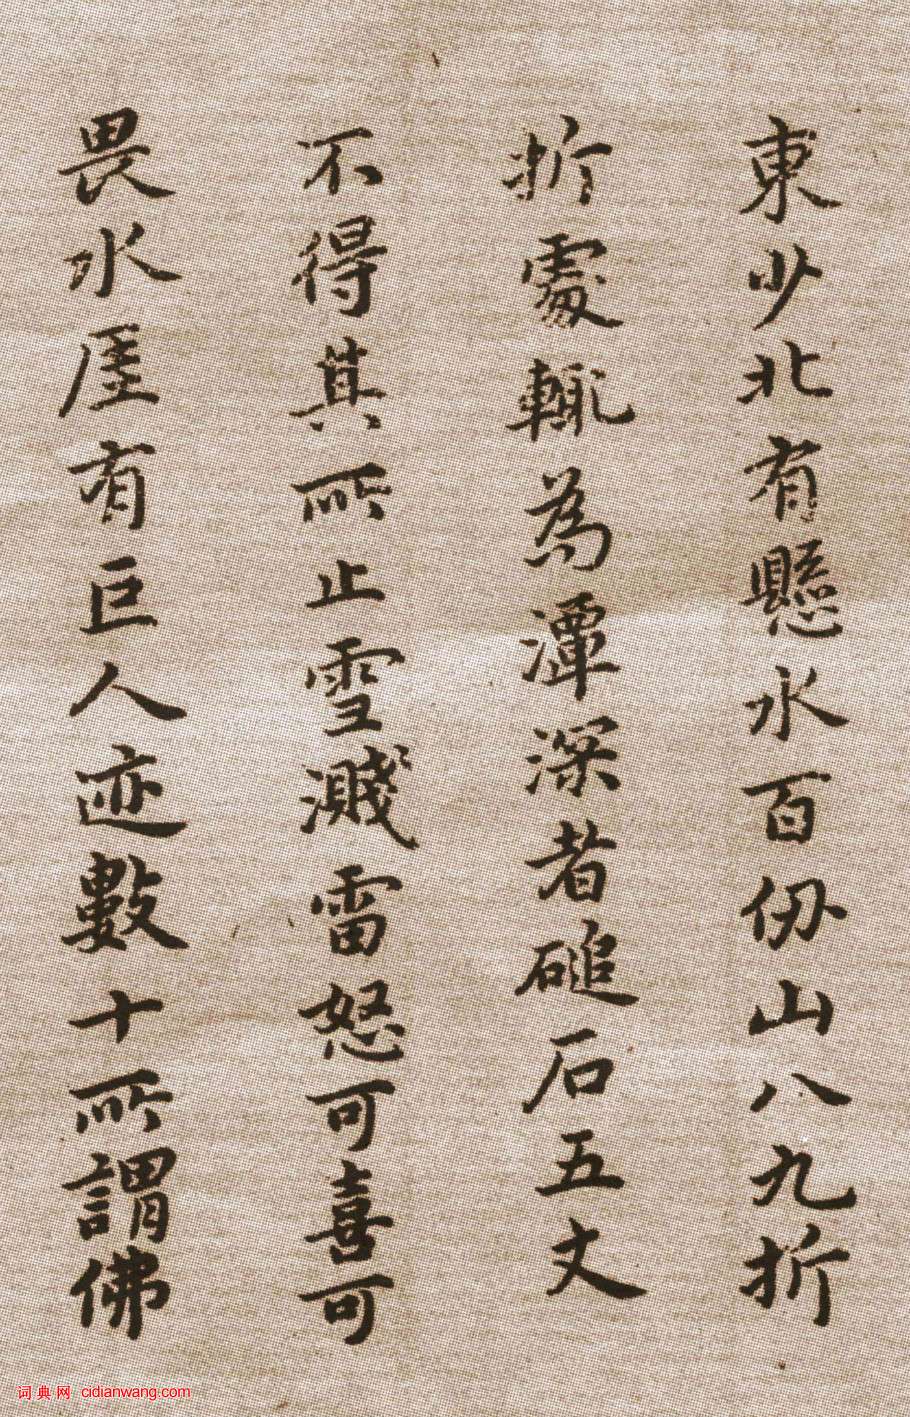 東少北有懸水百仞山八九折
折處輒為潭深者磓石五丈
不得其所止雪濺雷怒可喜可
畏水厓有巨人迹數十所謂佛
词典网 cidianwang.com